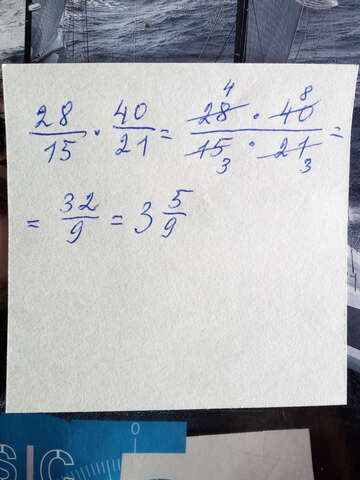 28/15 · 40/21 = 28 4 · 40 8 / 15 3 · 21 3 =
= 32/9 = 3 5/9
SIC
0